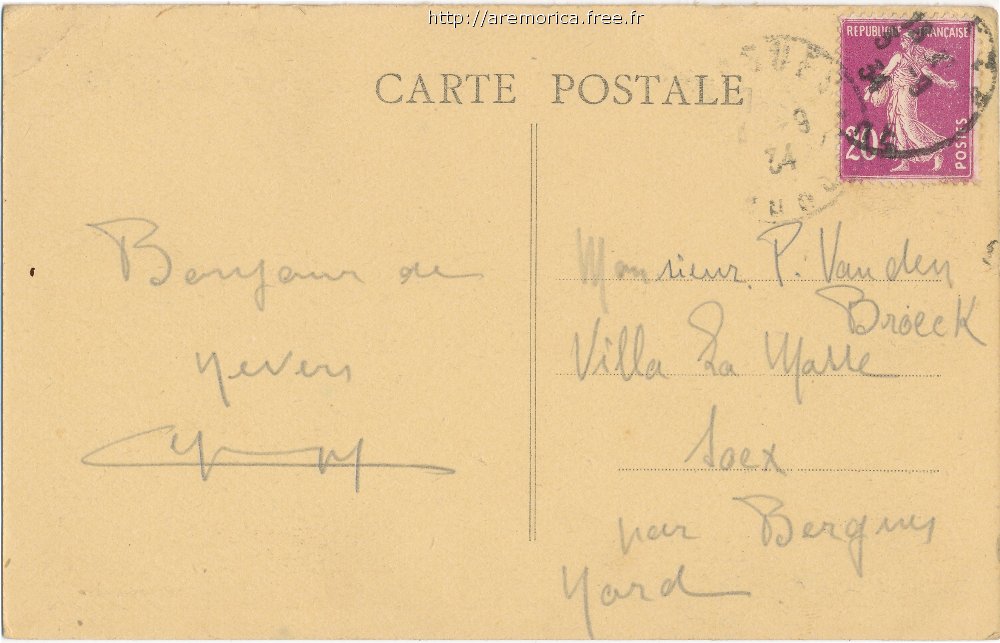 http://aremorica.free.fr
CARTE POSTALE
REPUBLIQUE FRANÇAISE
20c
POSTES
9
34
Bonjour de
Nevers
Monsieur P. Vanden
Broeck
Villa La Masse
Soex
par Bergues
Nord